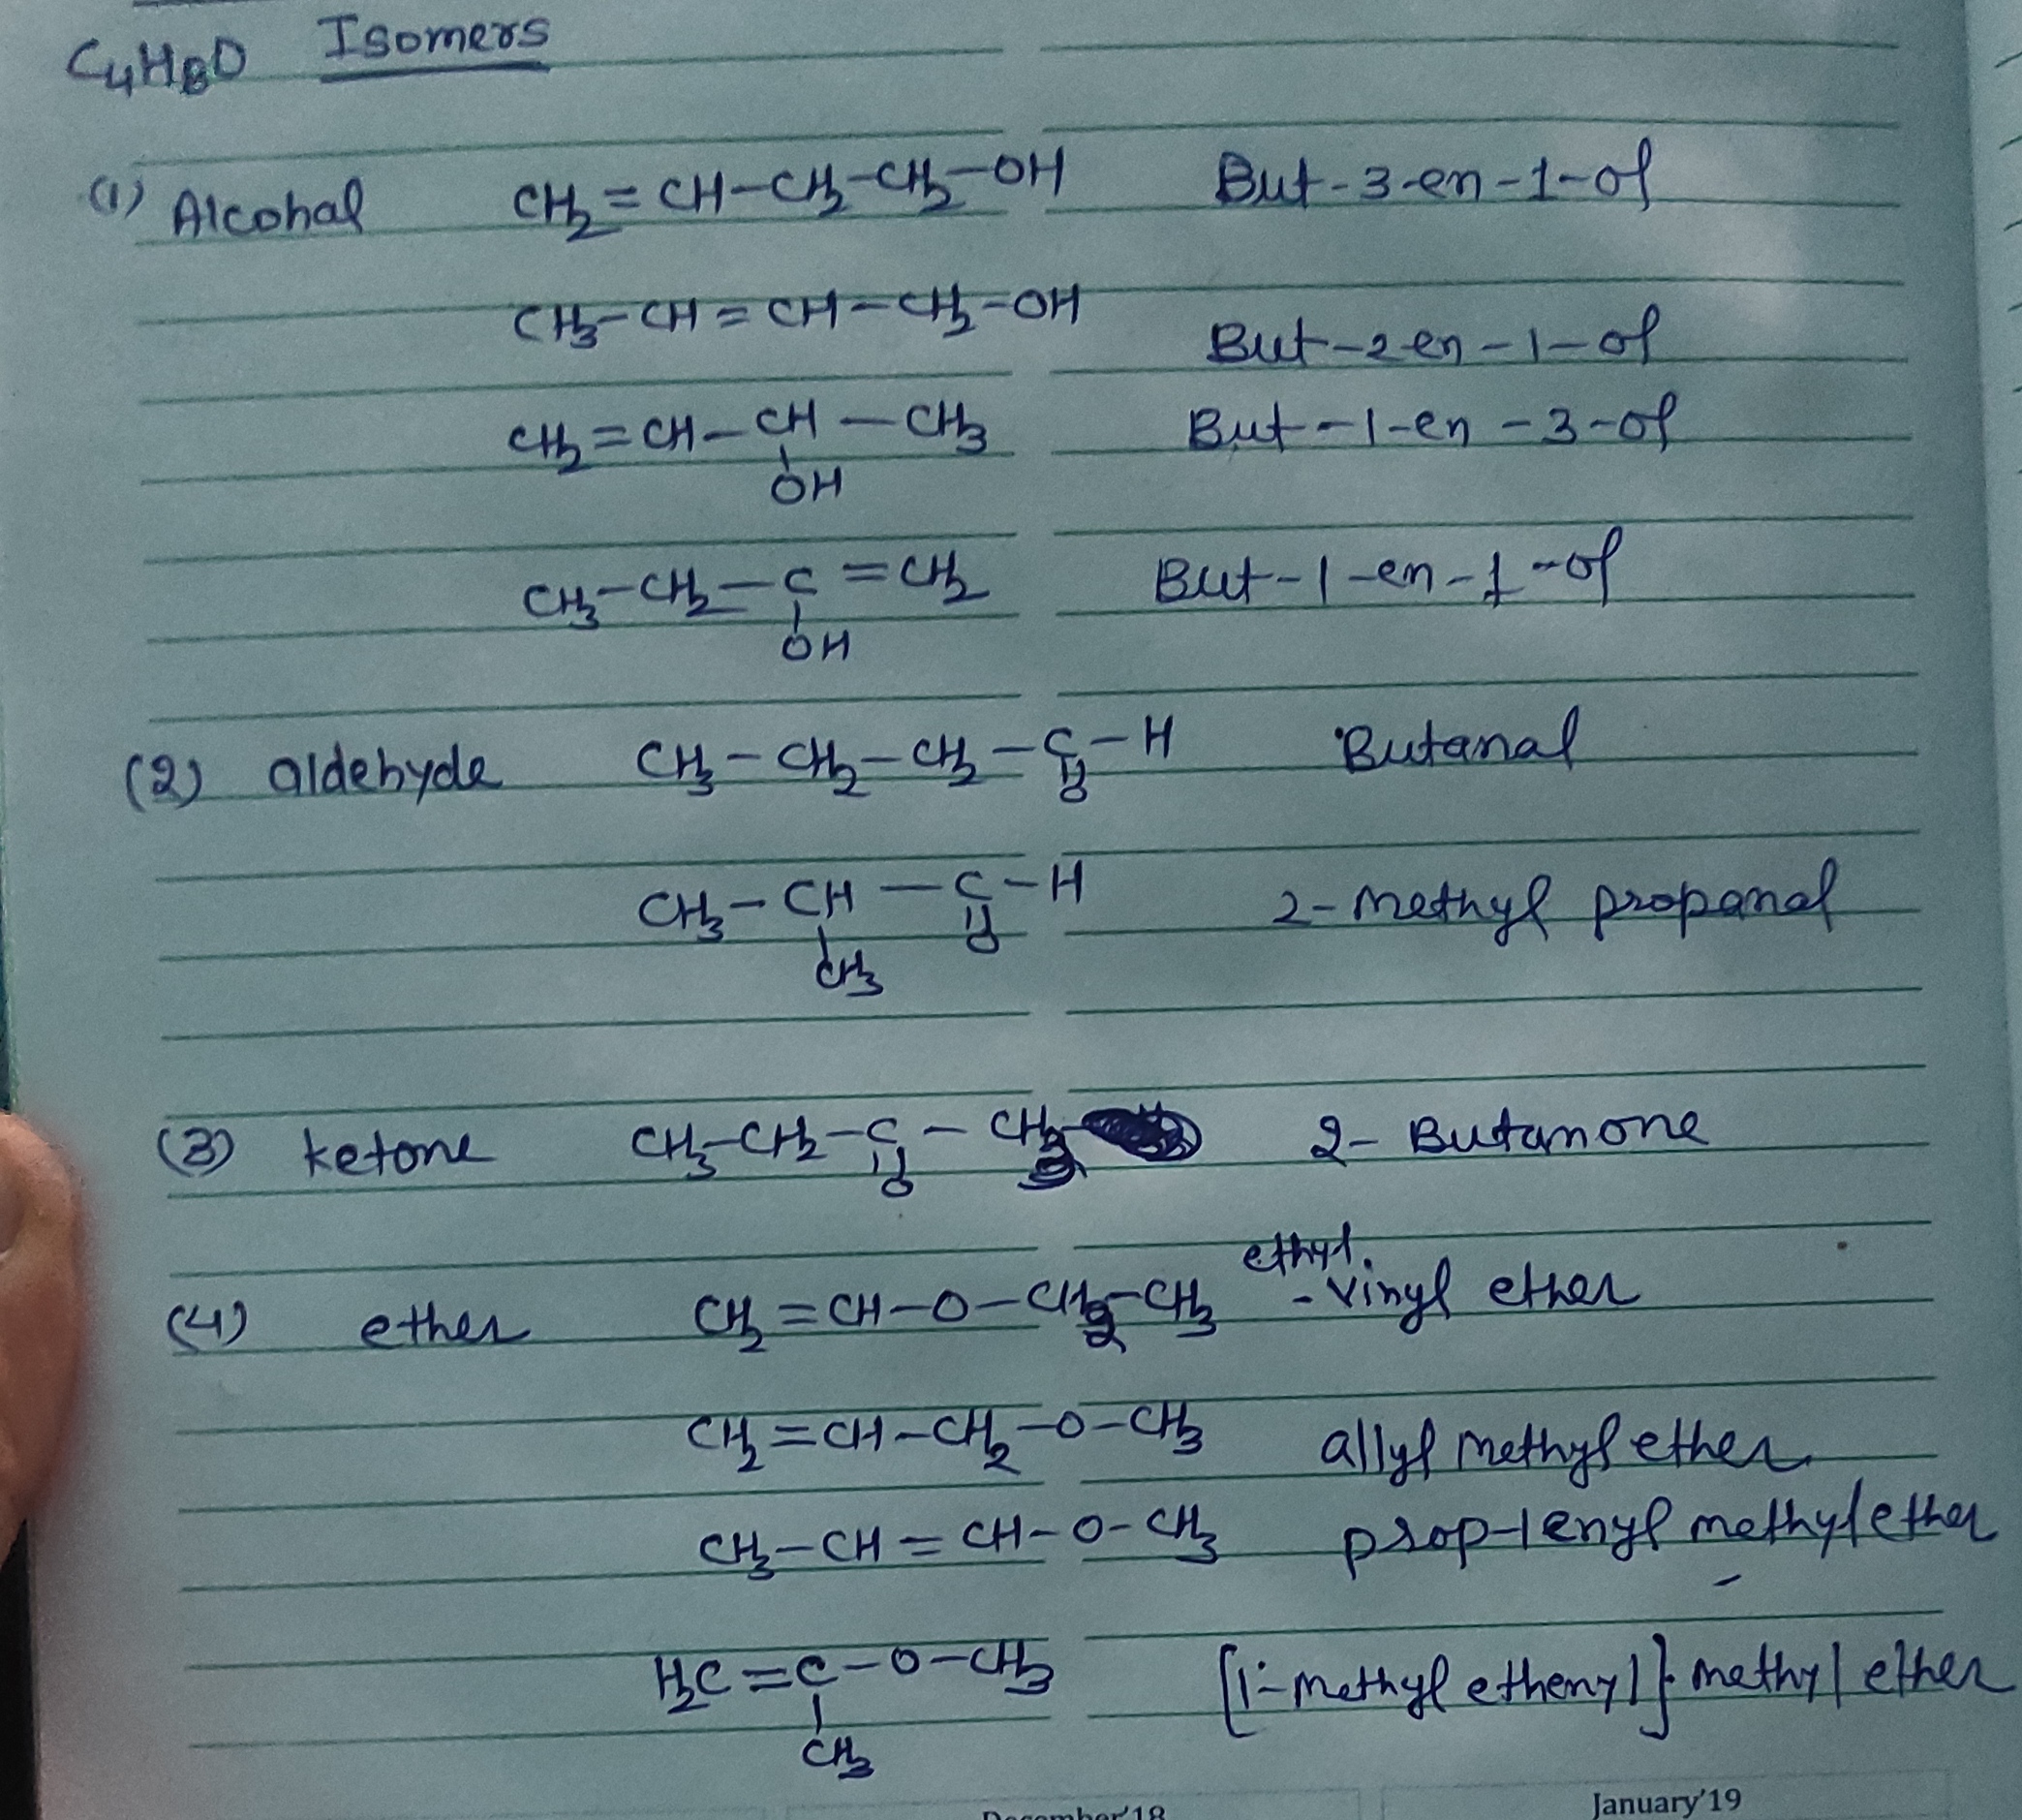 C₄H₈O Isomers
(1) Alcohal CH₂=CH-CH₂-CH₂-OH But-3-en-1-ol
CH₃-CH=CH-CH₂-OH But-2en-1-ol
CH₂=CH-CH-CH₃ But-1-en-3-ol
OH
CH₃-CH₂-C=CH₂ But-1-en-1-ol
OH
(2) aldehyde CH₃-CH₂-CH₂-C-H Butanal
O
CH₃-CH-C-H 2-methyl propanal
CH₃ O
(3) ketone CH₃-CH₂-C-CH₃ 2-Butanone
O
ethyl
(4) ether CH₂=CH-O-CH₂-CH₃ -vinyl ether
CH₂=CH-CH₂-O-CH₃ allyl methyl ether
CH₃-CH=CH-O-CH₃ prop-1enyl methyl ether
H₂C=C-O-CH₃ [1-methyl ethenyl] methyl ether
CH₃
December'18 January'19